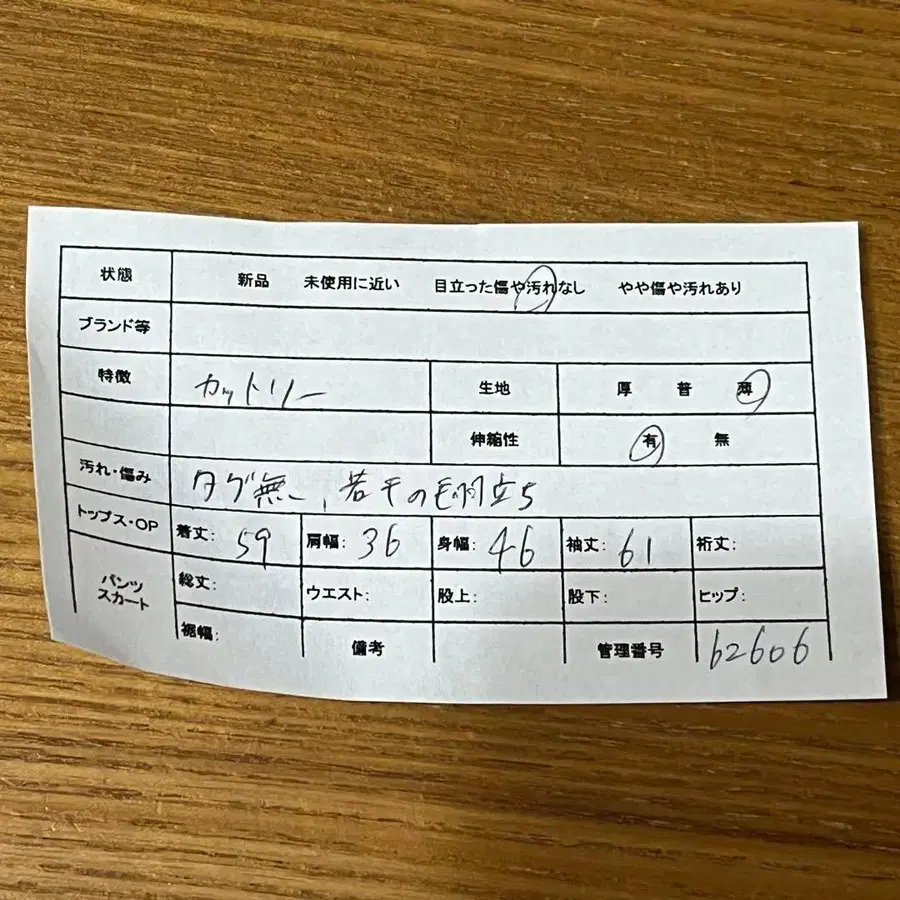 状態 新品 未使用に近い 目立った傷や汚れなし やや傷や汚れあり
ブランド等
特徴 カットソー 生地 厚 普 薄
伸縮性 有 無
汚れ・傷み タグ無、若干の毛羽立ち
トップス・OP 着丈: 59 肩幅: 36 身幅: 46 袖丈: 61 裄丈:
パンツ スカート 総丈: ウエスト: 股上: 股下: ヒップ:
裾幅: 備考 管理番号 62606